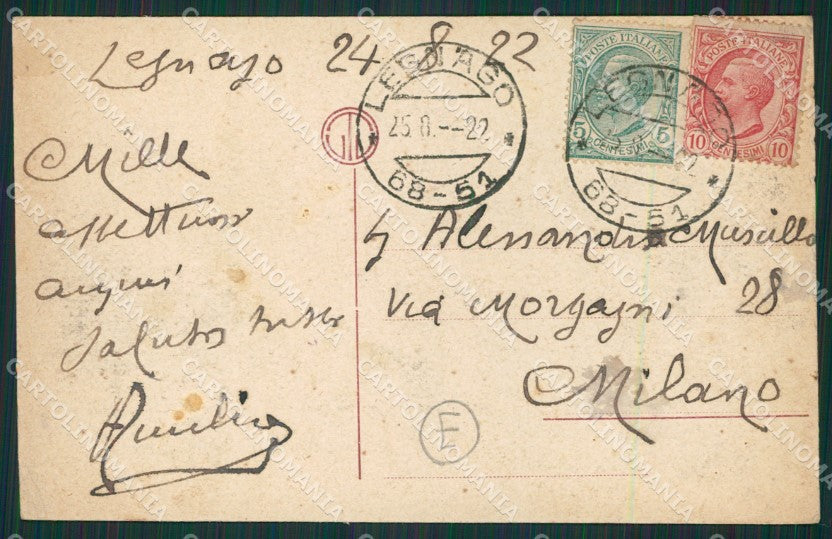 Legnago 24 8 22
LEGNAGO
25.8.--22
68-51
POSTE ITALIANE
5 5
CENTESIMI
POSTE ITALIANE
10 10
CENTESIMI
LEGNAGO
68-51
Mille
affettuosi
auguri
Saluta
Alessandro Muscillo
Via Morgagni 28
Milano
E
CARTOLINOMANIA